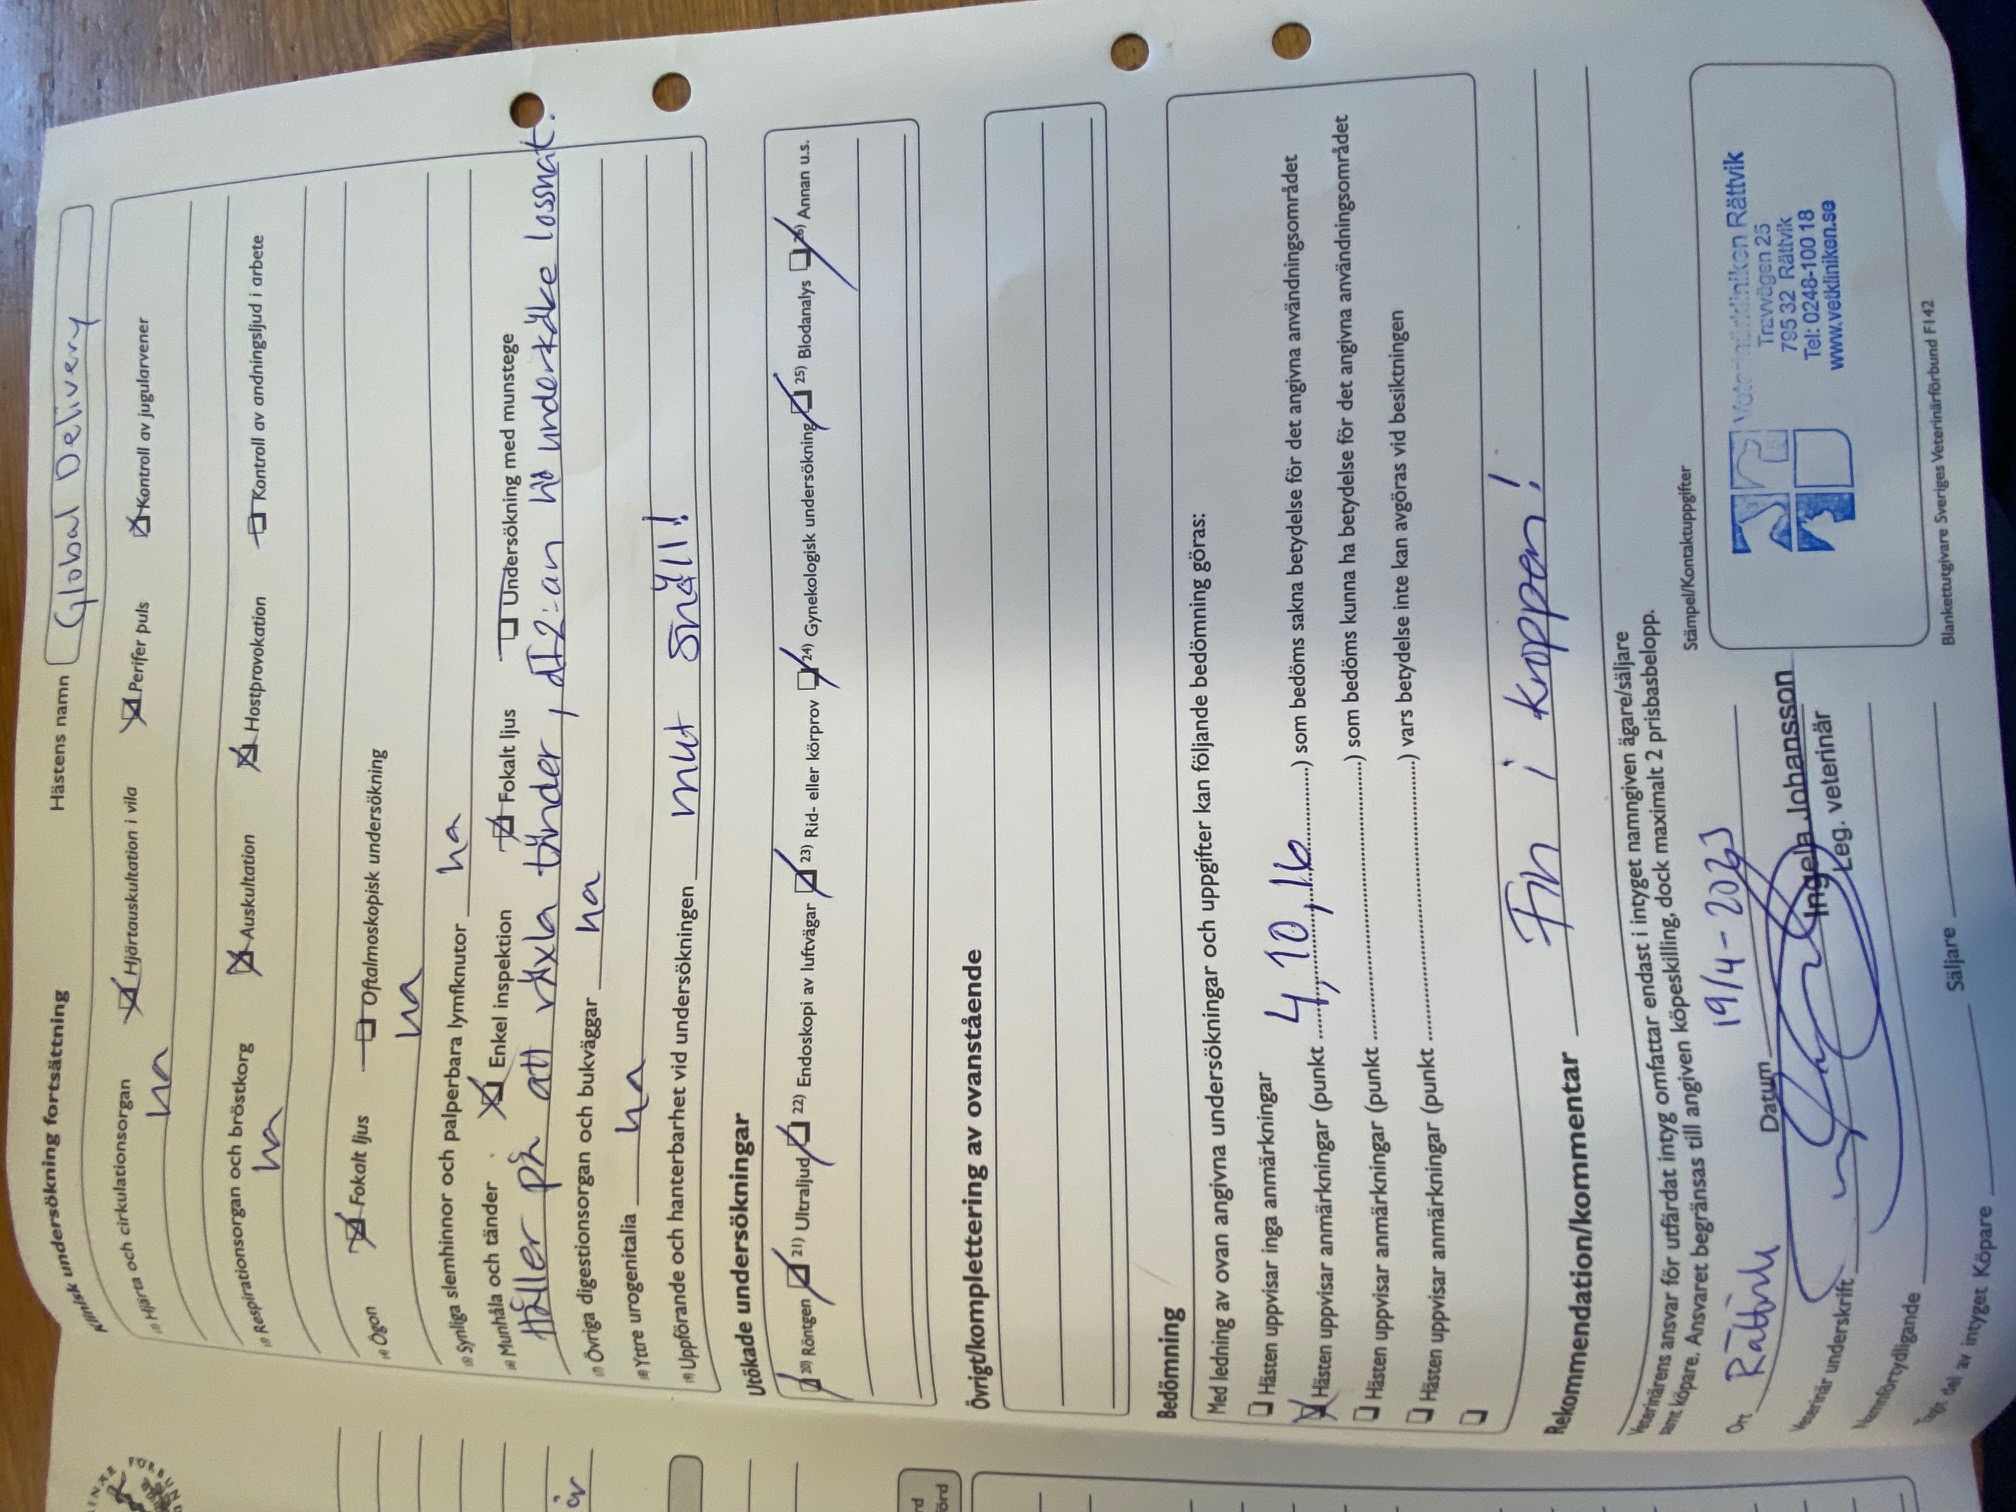 Klinisk undersökning fortsättning
Hästens namn Global Delivery
12) Hjärta och cirkulationsorgan Hjärtauskultation i vila Perifer puls Kontroll av jugularvener
na
13) Respirationsorgan och bröstkorg Auskultation Hostprovokation Kontroll av andningsljud i arbete
na
14) Ögon Fokalt ljus Oftalmoskopisk undersökning
na
15) Synliga slemhinnor och palperbara lymfknutor na
16) Munhåla och tänder Enkel inspektion Fokalt ljus Undersökning med munstege
Håller på att växla tänder, dI2:an underkäke lossnat.
17) Övriga digestionsorgan och bukväggar na
18) Yttre urogenitalia na
19) Uppförande och hanterbarhet vid undersökningen mkt snäll!
Utökade undersökningar
20) Röntgen 21) Ultraljud 22) Endoskopi av luftvägar 23) Rid- eller körprov 24) Gynekologisk undersökning 25) Blodanalys 26) Annan u.s.
Övrigt/komplettering av ovanstående
Bedömning
Med ledning av ovan angivna undersökningar och uppgifter kan följande bedömning göras:
Hästen uppvisar inga anmärkningar
Hästen uppvisar anmärkningar (punkt 4, 10, 16) som bedöms sakna betydelse för det angivna användningsområdet
Hästen uppvisar anmärkningar (punkt) som bedöms kunna ha betydelse för det angivna användningsområdet
Hästen uppvisar anmärkningar (punkt) vars betydelse inte kan avgöras vid besiktningen
Rekommendation/kommentar Fin i kroppen!
Veterinärens ansvar för utfärdat intyg omfattar endast i intyget namngiven ägare/säljare
samt köpare. Ansvaret begränsas till angiven köpeskilling, dock maximalt 2 prisbasbelopp.
Ort Rättvik Datum 19/4-2023
Stämpel/Kontaktuppgifter
Veterinärkliniken Rättvik
Travvägen 25
795 32 Rättvik
Tel: 0248-100 18
www.vetkliniken.se
Veterinär underskrift
Ingela Johansson
Leg. veterinär
Namnförtydligande
Tagit del av intyget Köpare Säljare
Blankettutgivare Sveriges Veterinärförbund F142